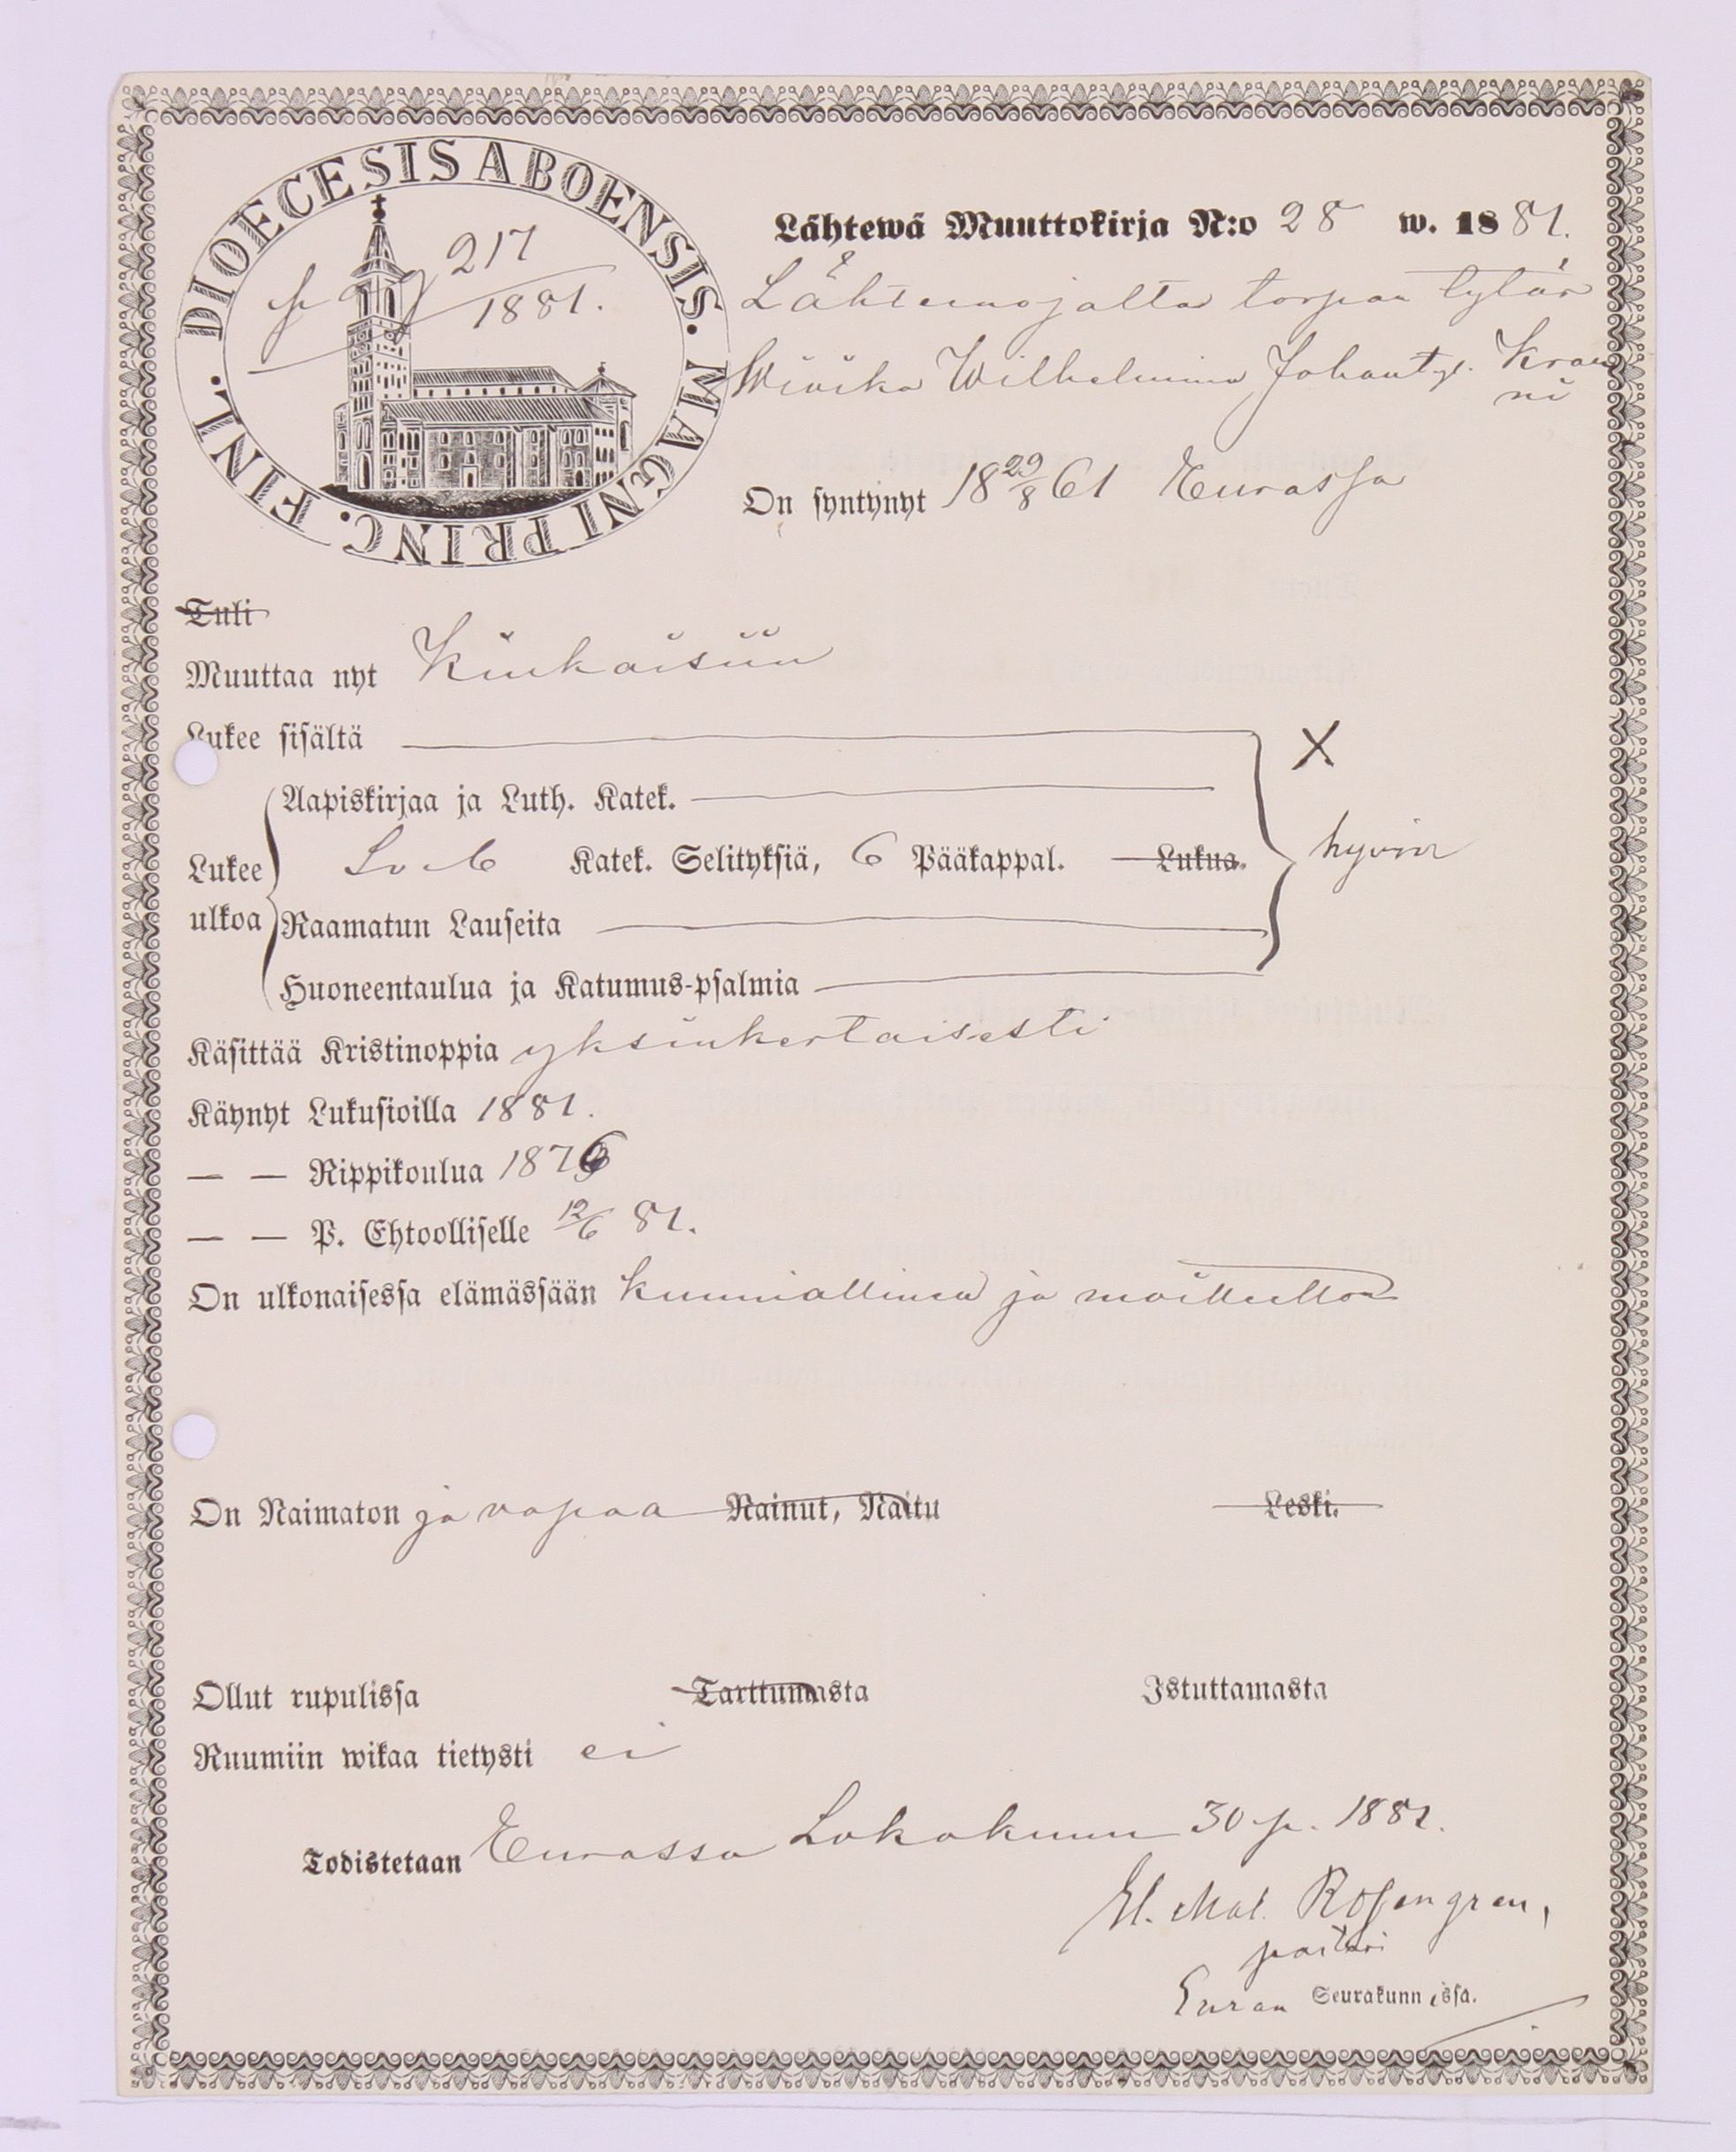 DIOECESIS ABOENSIS. MAGNI PRINC. FINL.
pag 217
1881.
Lähtewä Muuttokirja N:o 28 w. 1881.
Lähteenojalta torpan tytär
Wiiika Wilhelmina Johantyt. Kran
ni
On syntynyt 18 29/8 61 Eurassa
Tuli
Muuttaa nyt Kiukaisiin
Lukee sisältä X
Aapiskirjaa ja Luth. Katek.
Lukee Katek. Selityksiä, 6 Pääkappal. Lukua. hyvin
ulkoa Raamatun Lauseita
Huoneentaulua ja Katumus-psalmia
Käsittää Kristinoppia yksinkertaisesti
Käynyt Lukusioilla 1881.
— — Rippikoulua 1876
— — P. Ehtoolliselle 12/6 81.
On ulkonaisessa elämässään kunniallinen ja moitteeton
On Naimaton ja vapaa Nainut, Naitu Leski.
Ollut rupulissa Tarttumasta Istuttamasta
Ruumiin wikaa tietysti ei
Todistetaan Eurassa Lokakuun 30 p. 1881.
El. Mat. Rosengren,
pastori
Euran Seurakunnissa.